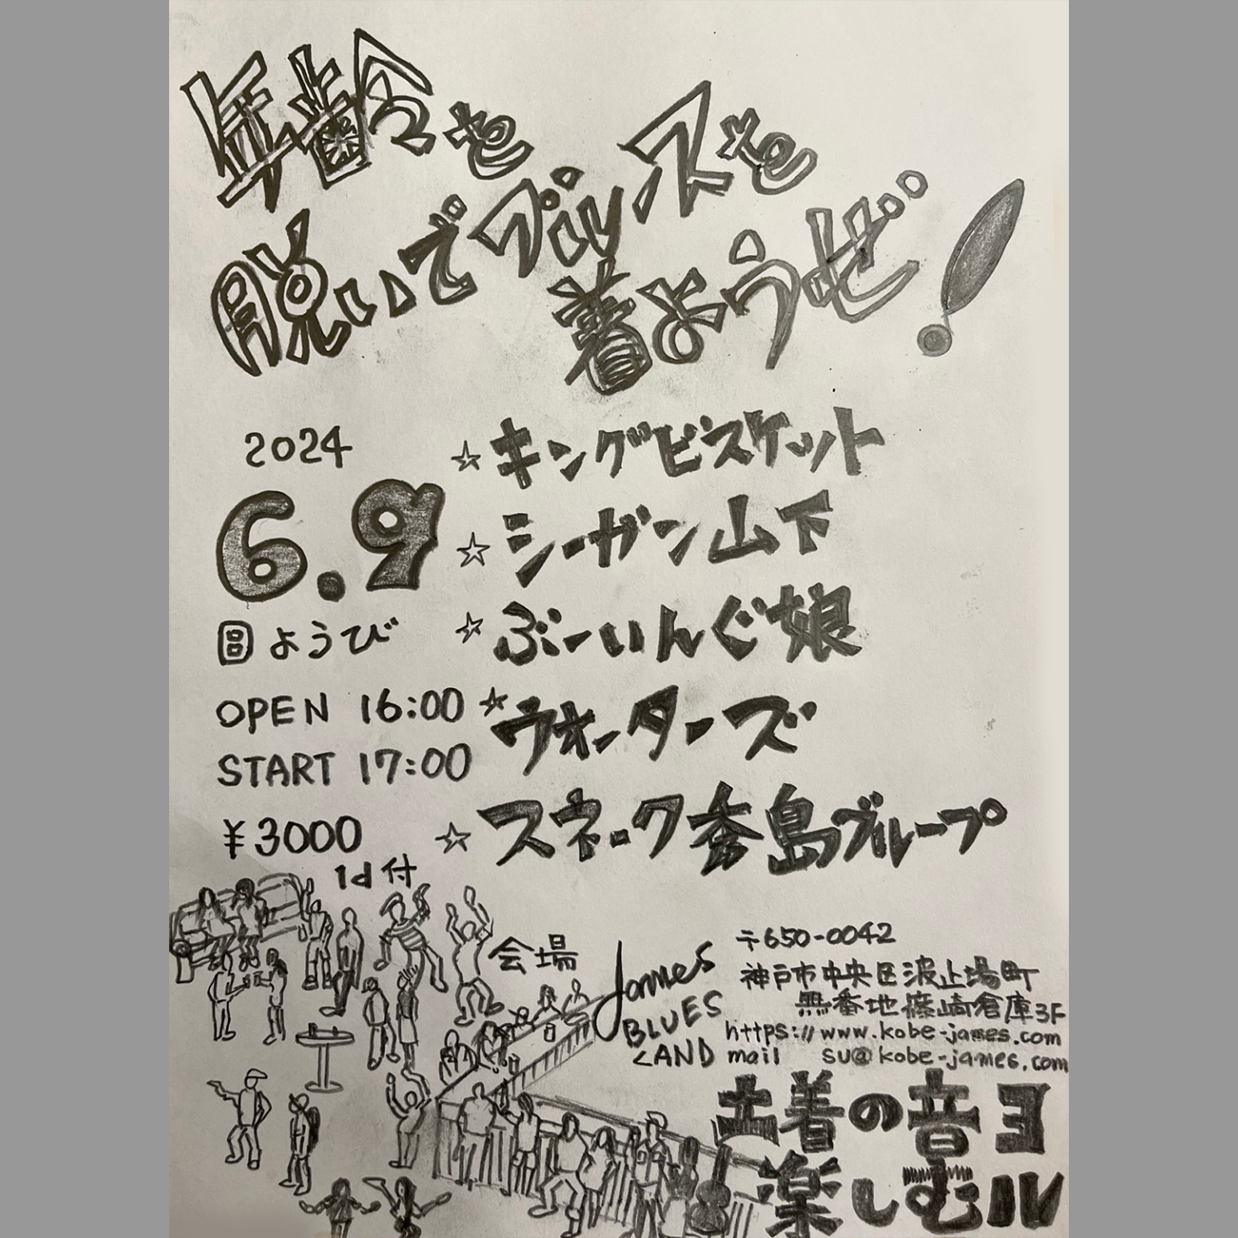 年齢を
脱いでブルースを
着ようぜ!
2024
6.9
日ようび
OPEN 16:00
START 17:00
¥3000
1d付
☆キングビスケット
☆シーガン山下
☆ぶーいんぐ娘
☆ウォーターズ
☆スネーク秀島グループ
会場
James
BLUES
LAND
〒650-0042
神戸市中央区波止場町
無番地篠崎倉庫3F
https://www.kobe-james.com
mail su@kobe-james.com
土着の音ヨ
楽しむル